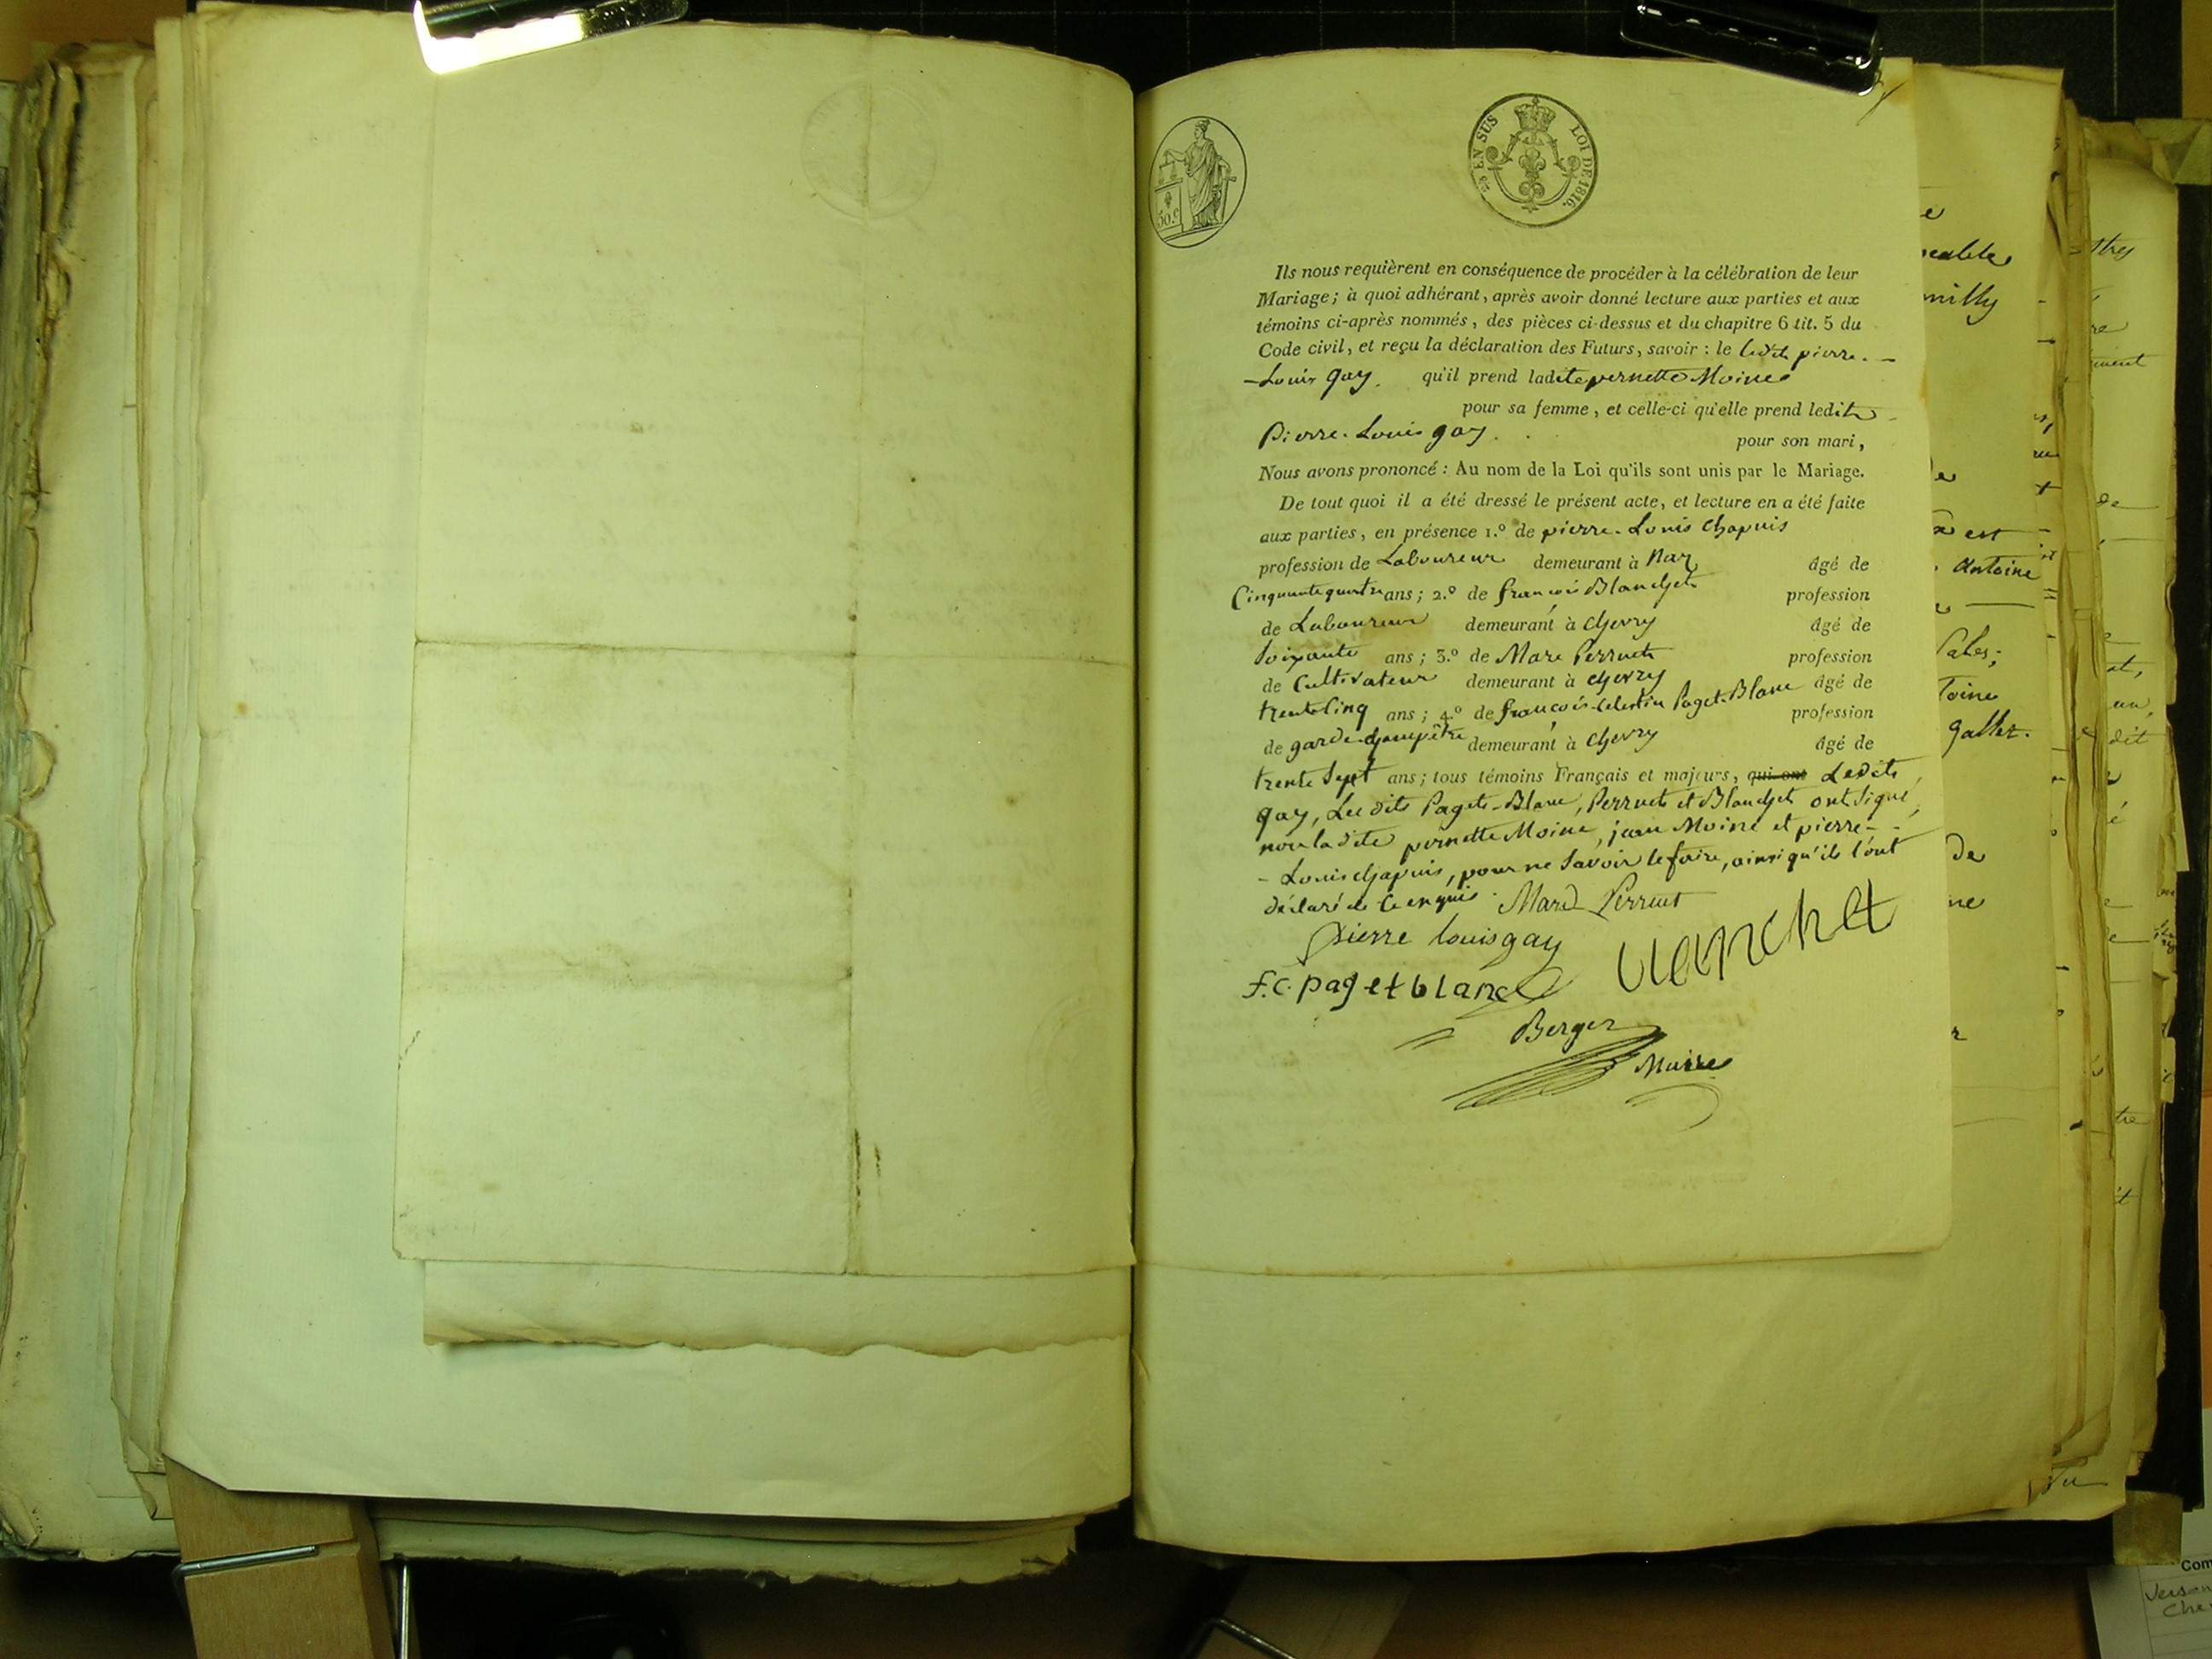 50 c
EN SUS
LOI DE 1816.
Ils nous requièrent en conséquence de procéder à la célébration de leur
Mariage; à quoi adhérant, après avoir donné lecture aux parties et aux
témoins ci-après nommés, des pièces ci-dessus et du chapitre 6 tit. 5 du
Code civil, et reçu la déclaration des Futurs, savoir : le ledit pierre-
-Louis gay. qu'il prend ladite pernette Moine
pour sa femme, et celle-ci qu'elle prend ledit
Pierre-Louis gay. pour son mari,
Nous avons prononcé : Au nom de la Loi qu'ils sont unis par le Mariage.
De tout quoi il a été dressé le présent acte, et lecture en a été faite
aux parties, en présence 1.º de pierre-Louis Chapuis
profession de Laboureur demeurant à Naz âgé de
Cinquante quatre ans; 2.º de françois Blanchet profession
de Laboureur demeurant à chevry âgé de
Soixante ans; 3.º de Marc Perruet profession
de Cultivateur demeurant à chevry âgé de
trente cinq ans; 4.º de françois-celestin Paget-Blanc profession
de garde-champêtre demeurant à chevry âgé de
trente Sept ans; tous témoins Français et majeurs, qui ont Ledit
gay, Les dits Paget-Blanc, Perruet et Blanchet ont Signé,
non ladite pernette Moine, jean Moine et pierre-
-Louis chapuis, pour ne Savoir le faire, ainsi qu'ils l'ont
déclaré de ce enquis. Marc Perruet
pierre louis gay
blanchet
f.c. paget blanc
Berger
Maire
milly
est
Antoine
Sales;
toine
gallet.
de
ne